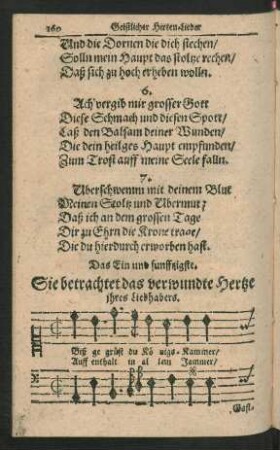 160 Geistlicher Hirten-Lieder
Und die Dornen die dich stechen/
Solln mein Haupt das stoltze rechen/
Daß sich zu hoch erheben wolln.
6.
Ach vergib mir grosser Gott
Diese Schmach und diesen Spott/
Laß den Balsam deiner Wunden/
Die dein heilges Haupt empfunden/
Zum Trost auff meine Seele falln.
7.
Uberschwemm mit deinem Blut
Meinen Stoltz und Ubermut;
Daß ich an dem grossen Tage
Dir zu Ehrn die Krone trage/
Die du hierdurch erworben hast.
Das Ein und funffzigste.
Sie betrachtet das verwundte Hertze
ihres Liebhabers.
Biß ge grüst du Kö nigs-Kammer/
Auff enthalt in al lem Jammer/
Gast-